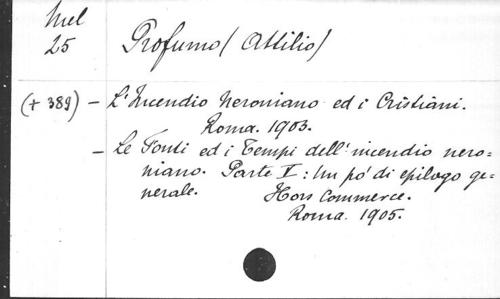 Mel
25
Profumo (Attilio)
(+ 389) – L'Incendio Neroniano ed i Cristiani.
Roma. 1903.
– Le Fonti ed i Tempi dell' incendio nero-
niano. Parte V : Un po' di epilogo ge-
nerale. Hors Commerce.
Roma. 1905.